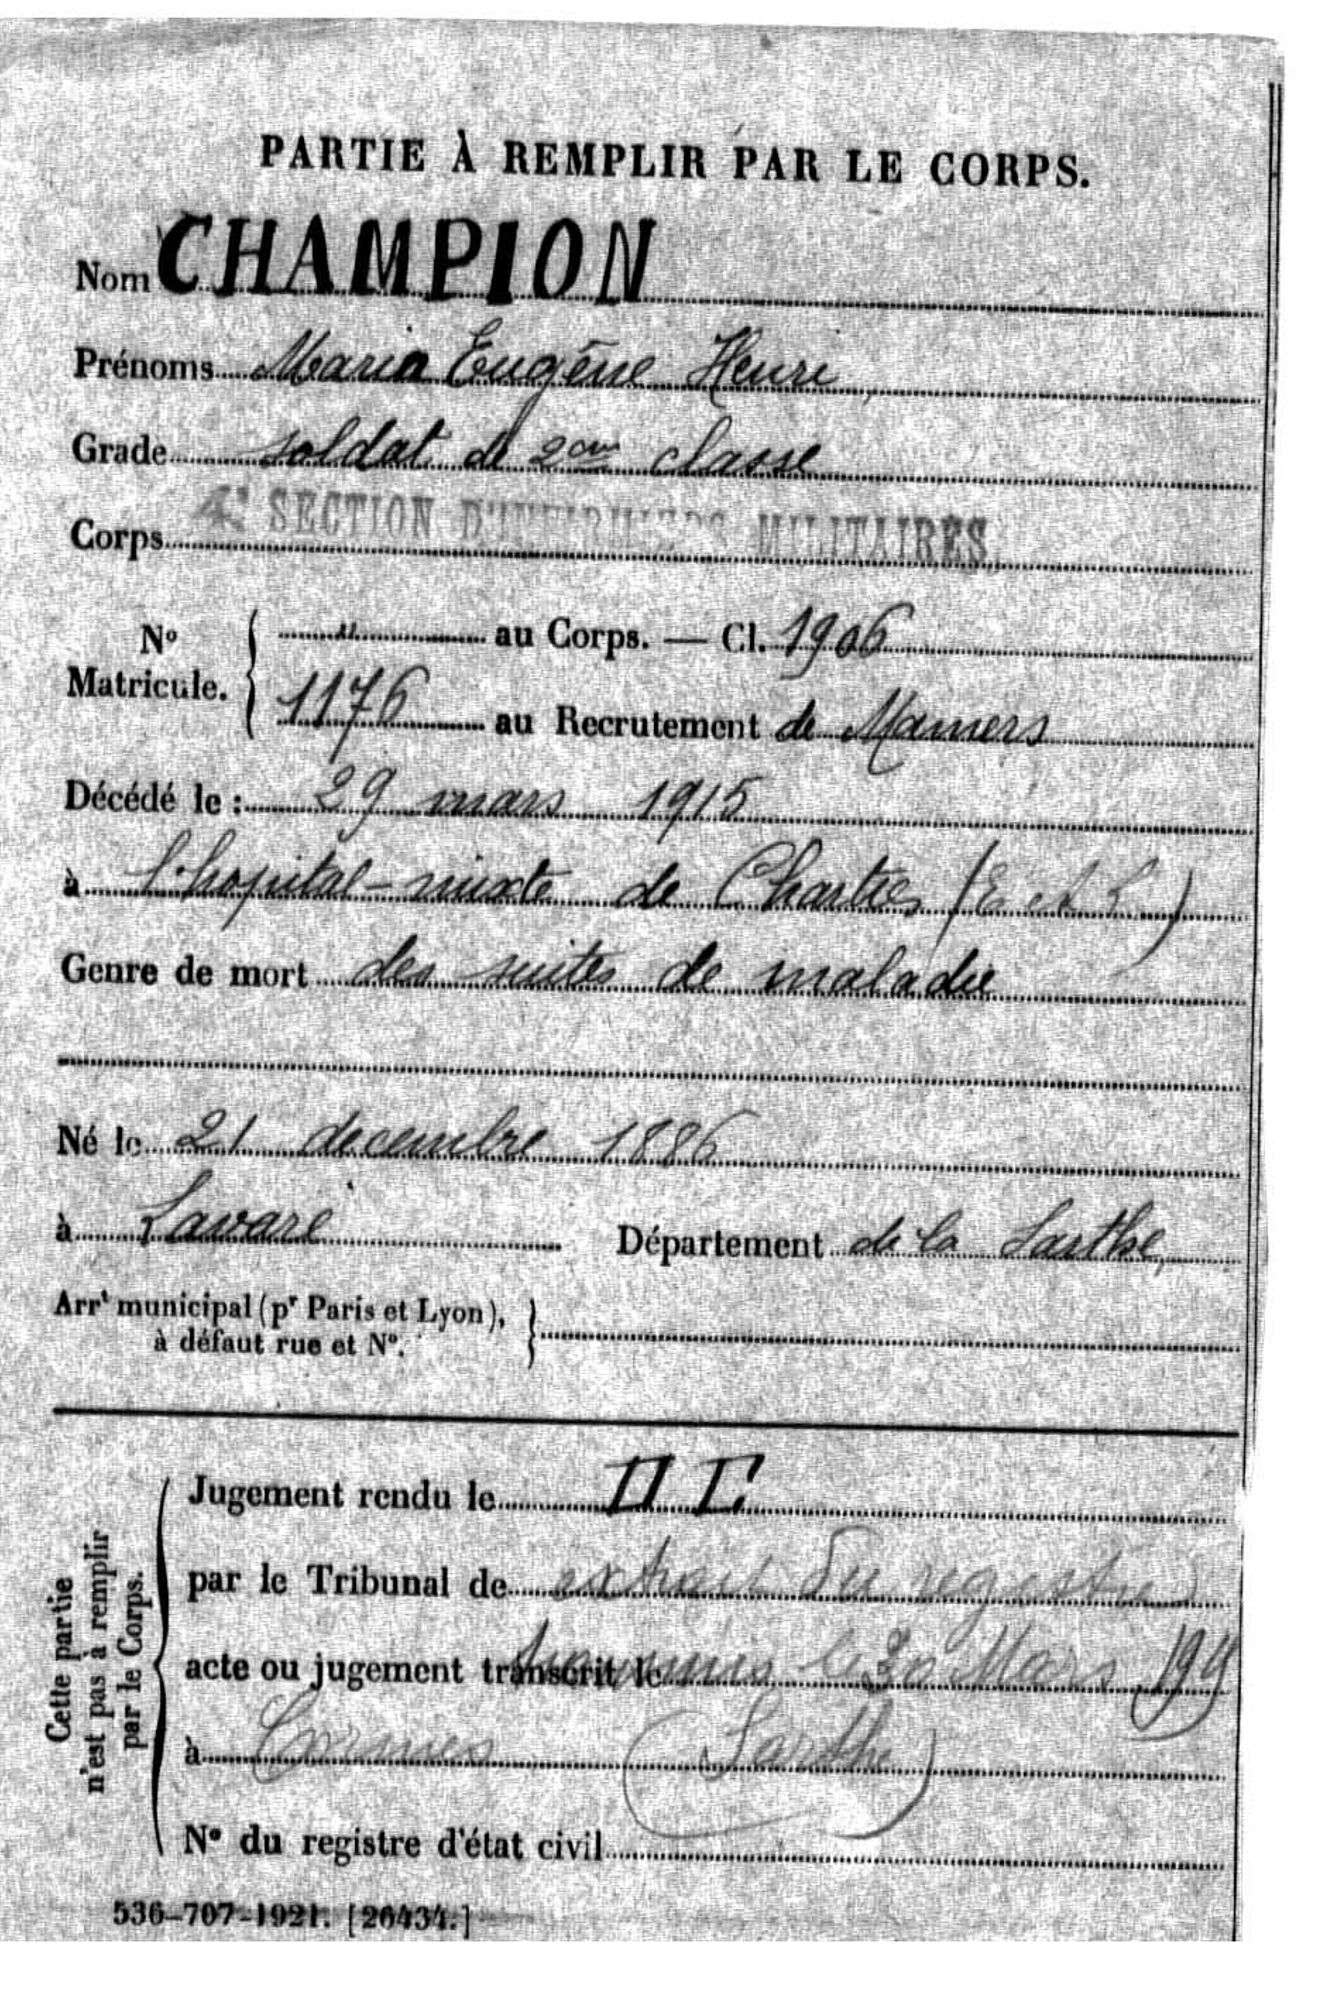 PARTIE À REMPLIR PAR LE CORPS.
Nom CHAMPION
Prénoms Maria Eugène Henri
Grade soldat de 2eme classe
Corps 4e SECTION D'INFIRMIERS MILITAIRES
No Matricule. " au Corps. — Cl. 1906
1176 au Recrutement de Mamers
Décédé le : 29 mars 1915
à l'hopital-mixte de Chartres (E et L)
Genre de mort des suites de maladie
Né le 21 decembre 1886
à Lavaré Département de la Sarthe
Arrt municipal (pr Paris et Lyon),
à défaut rue et No.
Cette partie
n'est pas à remplir
par le Corps.
Jugement rendu le
par le Tribunal de extrait du registre
acte ou jugement transcrit le transmis le 30 Mars
à Cormes (Sarthe)
No du registre d'état civil
536-707-1921. [26434.]